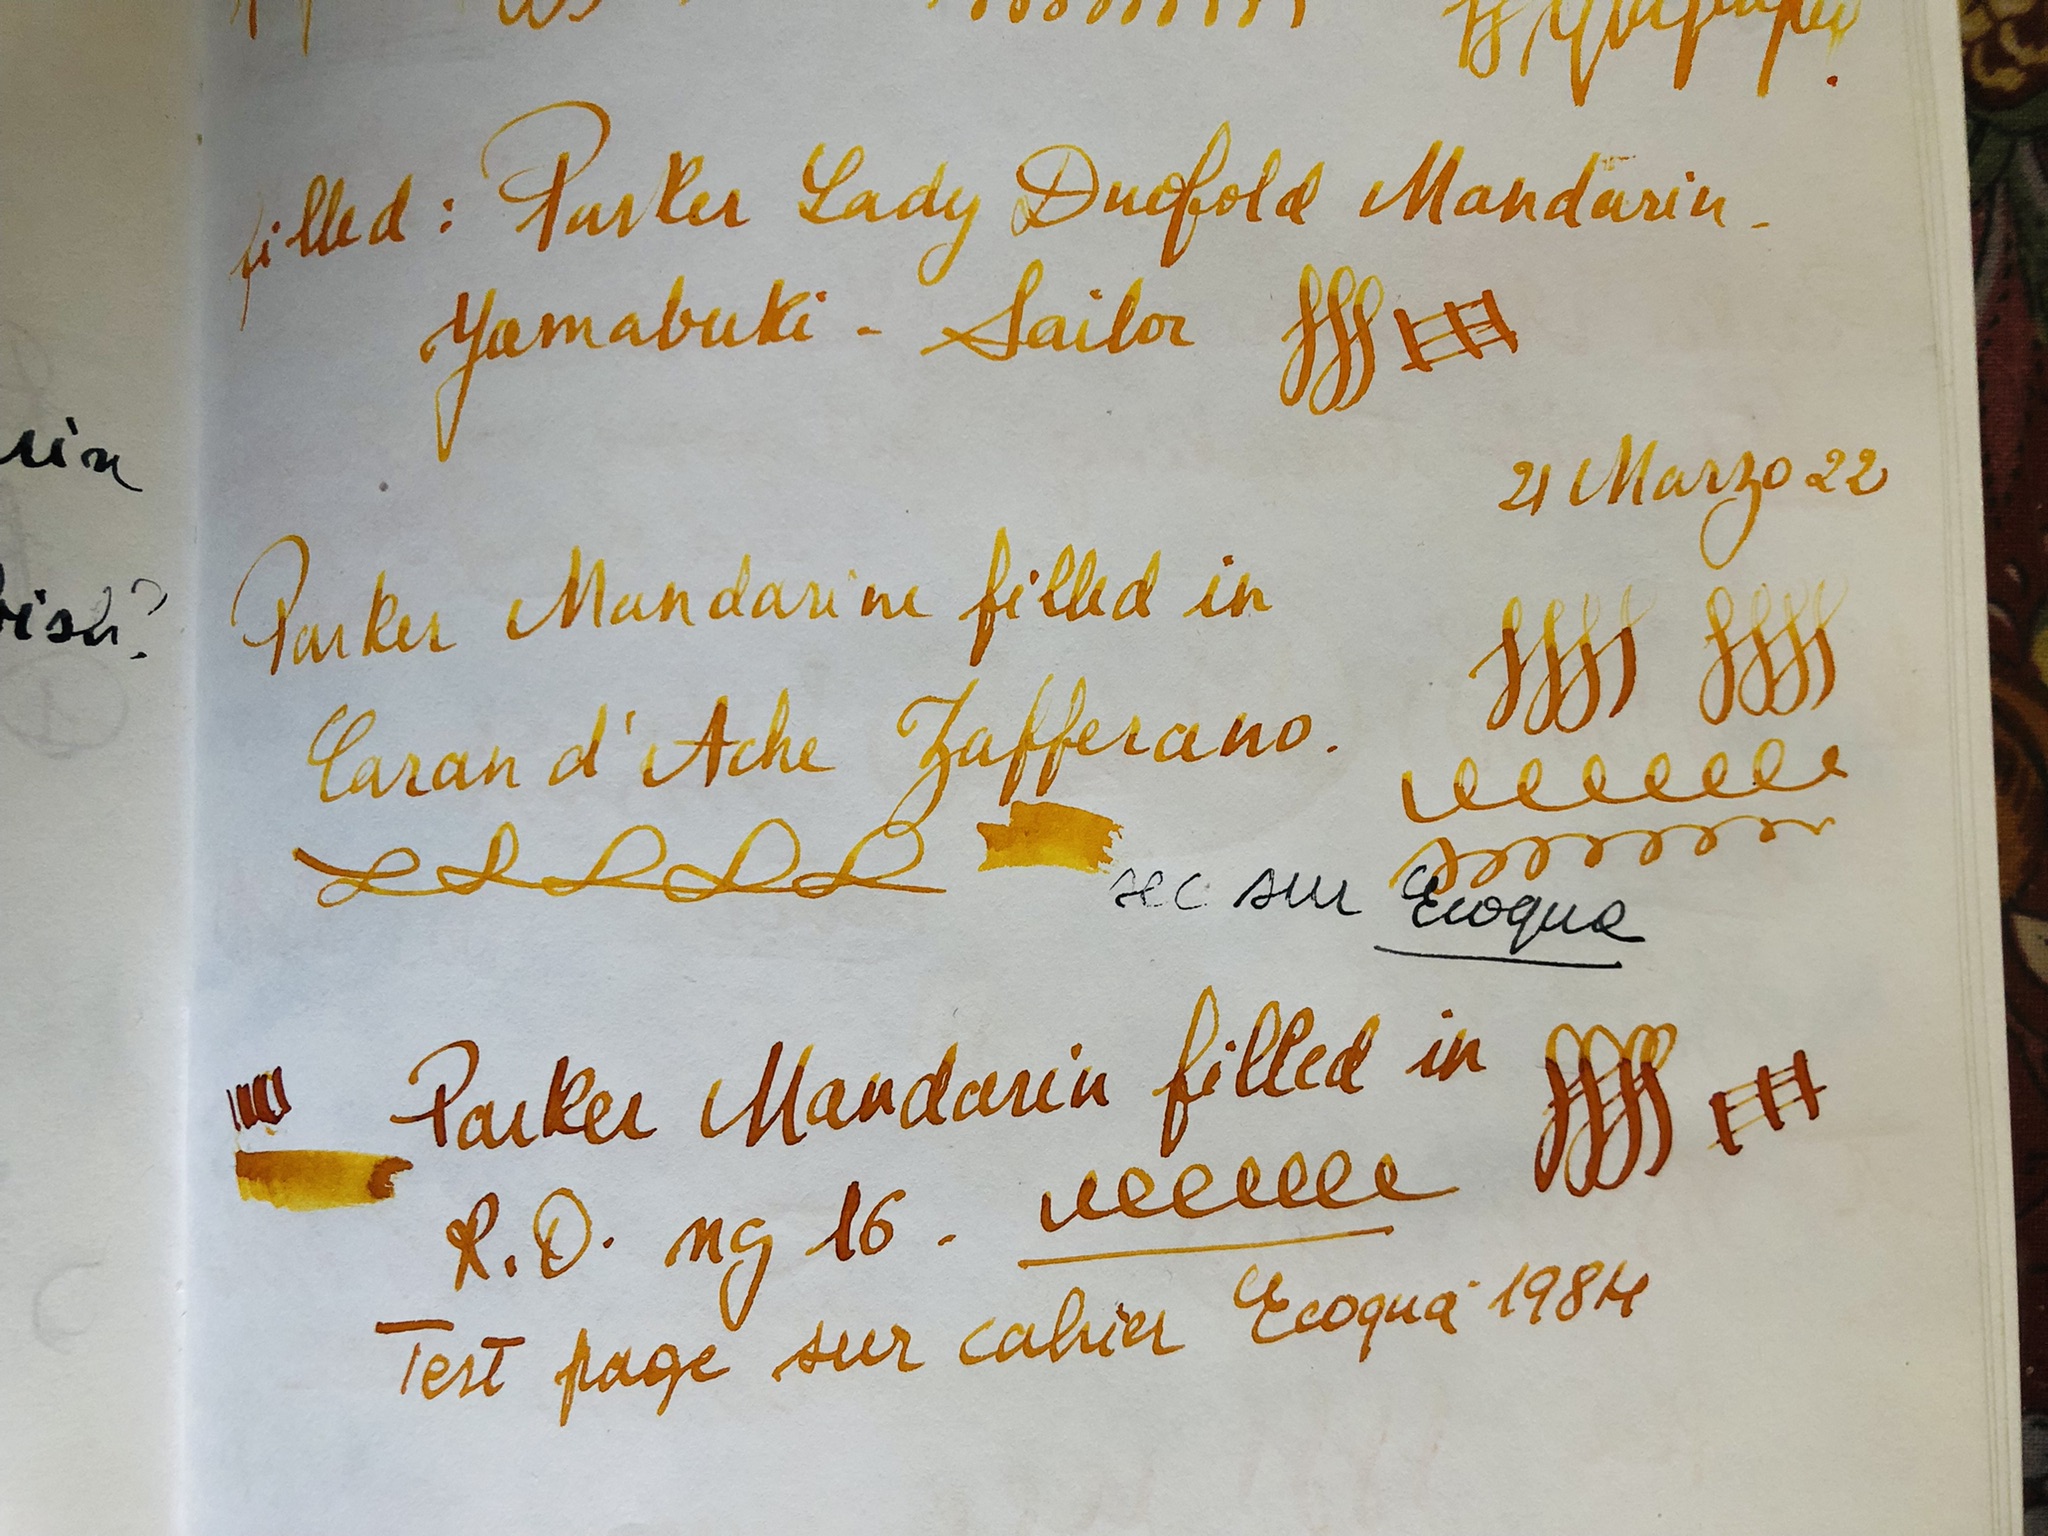 filled: Parker Lady Duofold Mandarin -
Yamabuki - Sailor
21 Marzo 22
Parker Mandarine filled in
Caran d'Ache Zafferano.
sec sur Ecoqua
Parker Mandarin filled in
R.O. ng 16 -
Test page sur cahier Ecoquà 1984